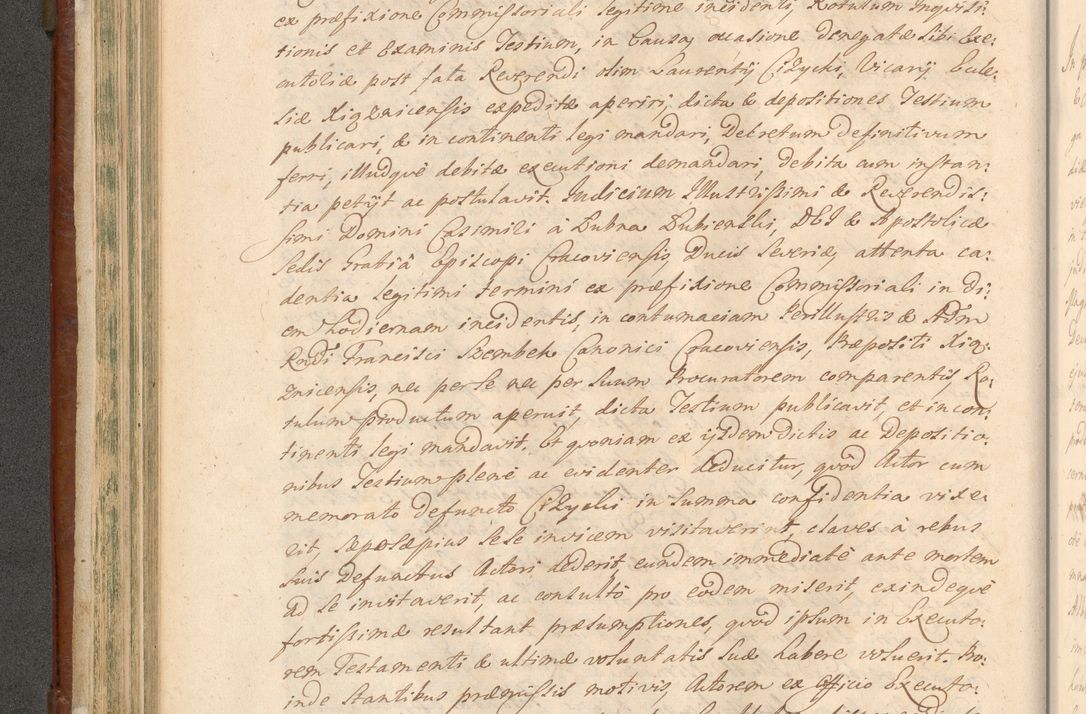 ex præfixione Commissoriali legitime incidenti, Rotulum Inqvisi:
tionis et Examinis Testium, in Causa, occasione denegatæ Sibi Exe:
cutoliæ post fata Reverendi olim Laurentij Ciżycki, Vicarij Eccle:
siæ Xiąznicensis expeditæ aperiri, dicta & depositiones Testium
publicari, & in continenti legi mandari, Decretum definitivum
ferri, illudqvè debitæ executioni demandari, debita cum instan:
tia petijt ac postulavit. Judicium Illustrissimi & Reverendis:
simi Domini Casimiri à Łubna Łubienski, DEI & Apostolicæ
Sedis Gratiâ Episcopi Cracoviensis, Ducis Severiæ, attenta ca:
dentia legitimi termini ex præfixione Commissoriali in di:
em hodiernam incidentis, in contumaciam Perillustris & Adm
Rndi Francisci Szembek Canonici Cracoviensis, Præpositi Xią:
znicensis, nec per se nec per suum Procuratorem comparentis, Ro:
tulum productum aperuit, dicta Testium publicavit, et in con:
tinenti legi mandavit. Et qvoniam ex ijsdem dictis ac Depositio:
nibus Testium plenè ac evidenter deducitur, qvòd Actor cum
memorato defuncto Ciżycki in summa confidentia vixe:
rit, sæpesæpius sese invicem visitaverint, claves à rebus
suis Defunctus Actori dederit, eundem immediatè ante mortem
ad se invitaverit, ac consultò pro eodem miserit, exindeqvè
fortissimæ resultant præsumptiones, qvòd ipsum in Executo:
rem Testamenti & ultimæ voluntatis suæ habere voluerit. Pro:
inde stantibus præmissis motivis, Actorem ex Officio Executo: